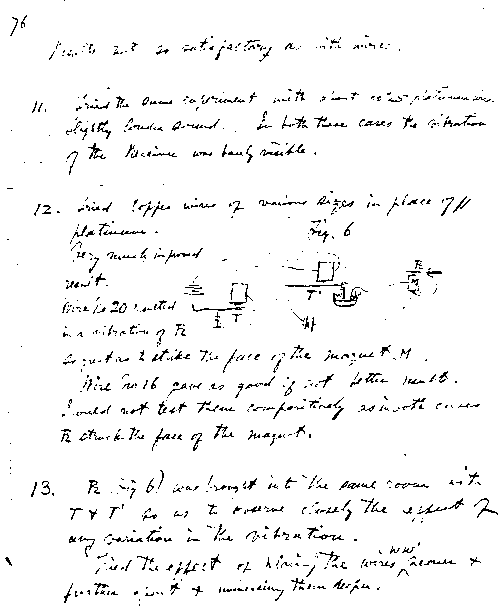 76
Results not so satisfactory as with wires.
11. Tried the same experiment with short platinum wire
slightly louder sound. In both these cases the vibration
of the Receiver was barely visible.
12. Tried Copper wires of various sizes in place of
platinum. Fig. 6
Very much improved
result.
Wire No 20 resulted
in a vibration of R
T T' R M
so great as to strike the face of the magnet M.
Wire No 16 gave as good if not better result.
I could not test them comparatively as in both cases
R struck the face of the magnet.
13. R (Fig 6) was brought into the same room with
T & T' so as to observe closely the effect of
any variation in the vibration.
Tried the effect of the wires WW' nearer &
further apart & immersing them deeper.